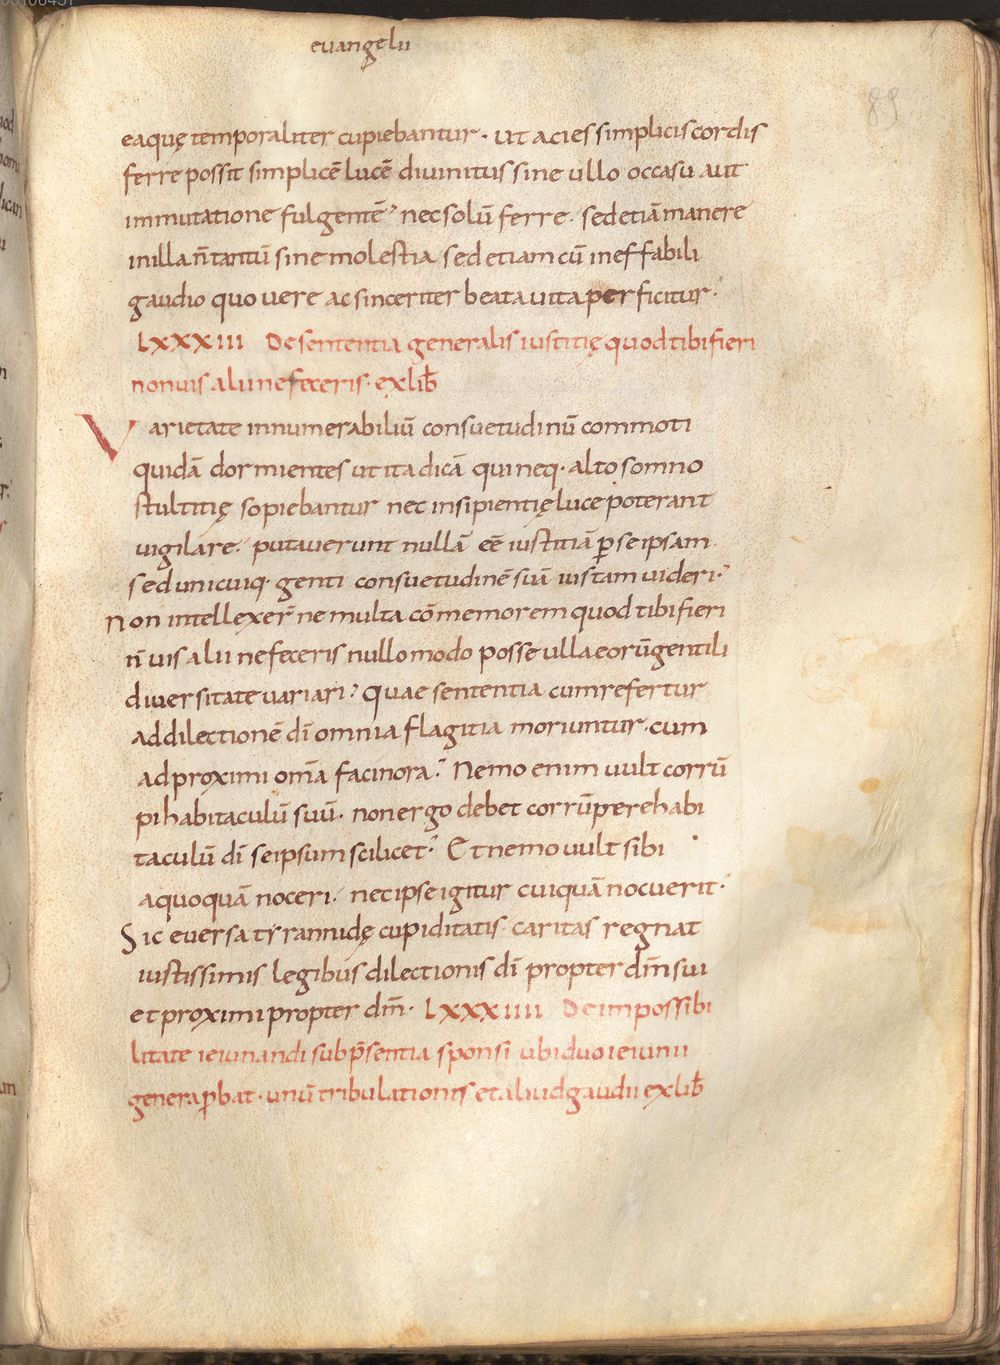 evangelii
89
eaquę temporaliter cupiebantur · ut acies simplicis cordis
ferre possit simplicē lucē divinitus sine ullo occasu aut
immutatione fulgentē · nec solū ferre · sed etiā manere
in illa n̄ tantū sine molestia sed etiam cū ineffabili
gaudio quo vere ac sinceriter beata vita perficitur ·
LXXXIII De sententia generalis iustitię quod tibi fieri
non vis alii ne feceris · ex lib̄
Varietate innumerabiliū consuetudinū commoti
quidā dormientes ut ita dicā qui neq· alto somno
stultitię sopiebantur nec in sipientię luce poterant
vigilare · putaverunt nullā eē iustitiā p̱ se ipsam
sed unicuiq· genti consuetudinē suā iustam videri ·
Non intellexer̄ ne multa cōmemorem quod tibi fieri
n̄ vis alii ne feceris nullo modo posse ulla eorū gentili
diversitate variari · quae sententia cum refertur
ad dilectionē dī omnia flagitia moriuntur · cum
ad proximi om̄a facinora · Nemo enim vult corrū
pi habitaculū suū · non ergo debet corrūpere habi
taculū dī seipsum scilicet · Et nemo vult sibi
a quoquā noceri · nec ipse igitur cuiquā nocuerit ·
Sic eversa tyrannidę cupiditatis · caritas regnat
iustissimis legibus dilectionis dī propter dm̄ sui
et proximi propter dm̄ · LXXXIIII De impossibi
litate ieiunandi sub p̄sentia sponsi ubi duo ieiunii
genera p̱bat · unū tribulationis et aliud gaudii ex lib̄